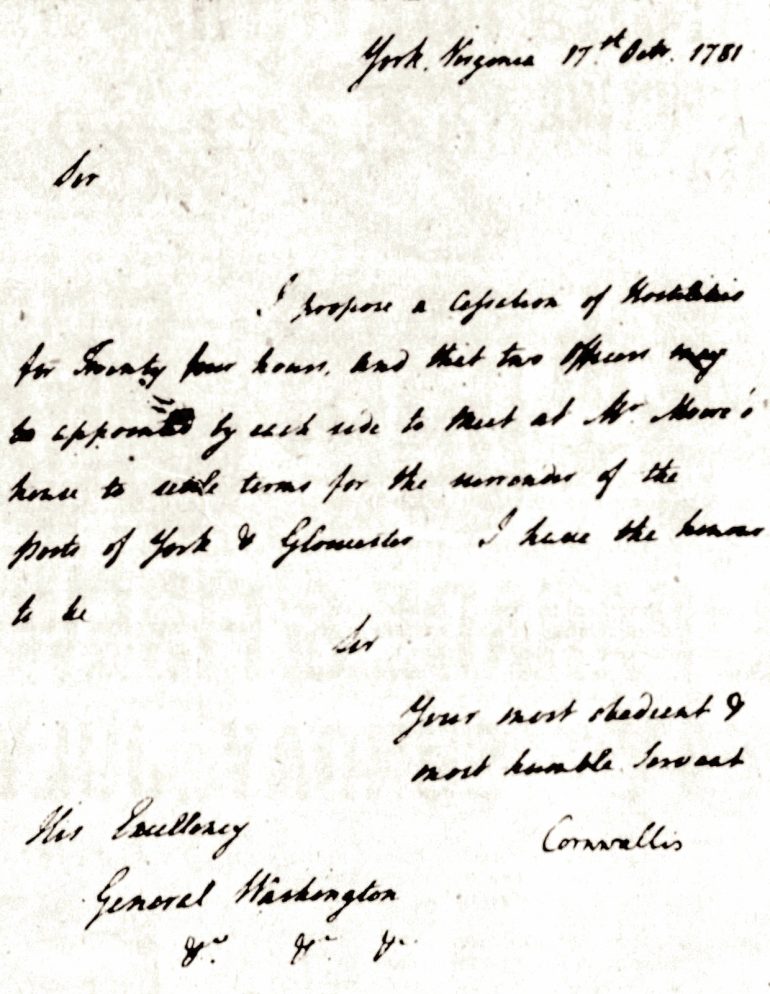 York. Virginia 17th Octr. 1781
Sir
I propose a Cessation of Hostilities
for Twenty four hours, and that two Officers may
be appointed by each side to meet at Mr. Moore's
house to settle terms for the surrender of the
posts of York & Gloucester I have the honour
to be
Sir
Your most obedient &
most humble Servant
Cornwallis
His Excellency
General Washington
&c. &c. &c.